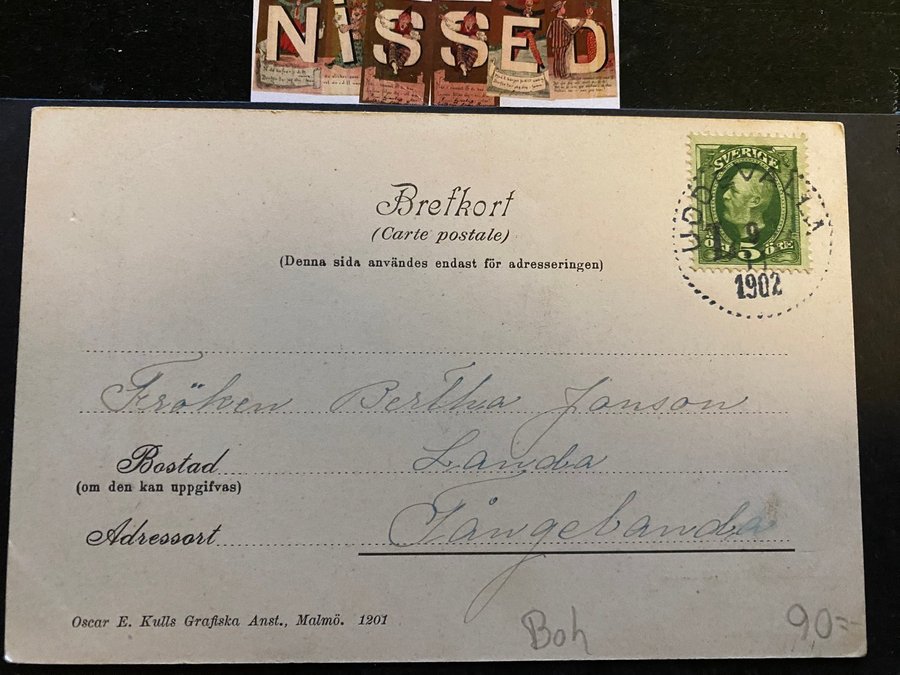 NiSSED
Brefkort
(Carte postale)
(Denna sida användes endast för adresseringen)
SVERIGE
5 ÖRE
UDDEVALLA
1902
Fröken Bertha Jonson
Bostad Landa
(om den kan uppgifvas)
Adressort Tångelanda
Oscar E. Kulls Grafiska Anst., Malmö. 1201
Boh
90:-